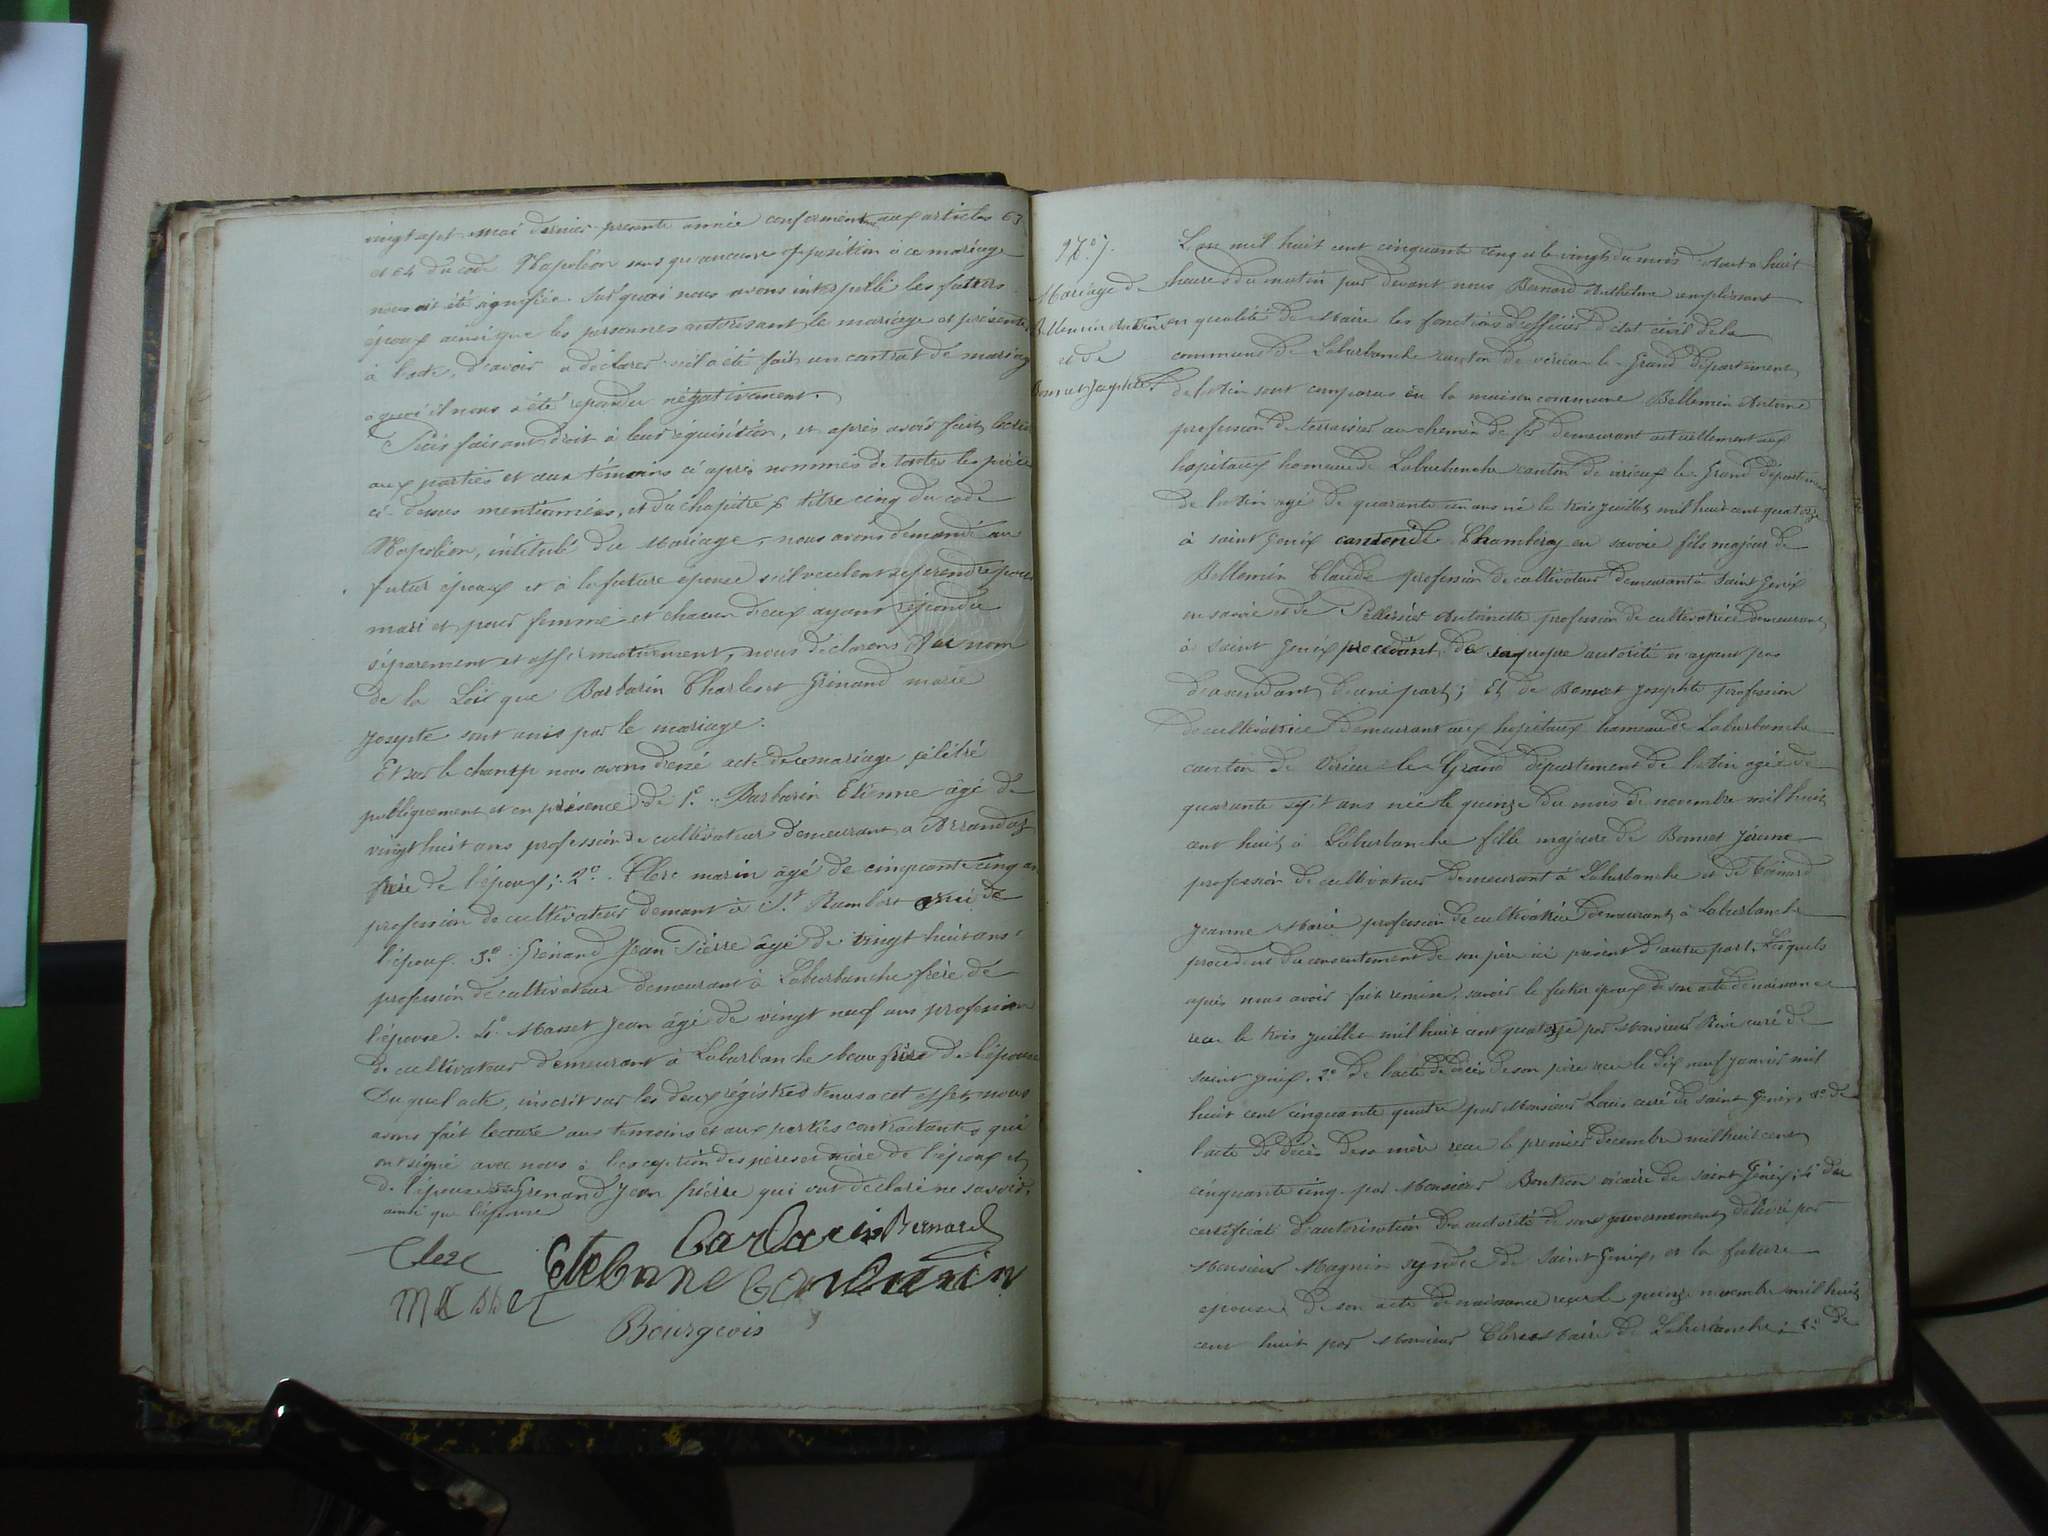 vingt sept mai dernier présente année conformément aux articles 63
et 64 du code Napoléon sans qu'aucune opposition à ce mariage
nous ait été signifiée. Sur quoi nous avons interpellé les futurs
époux ainsi que les personnes autorisant le mariage et présentes
à l'acte, d'avoir a déclarer s'il a été fait un contrat de mariage
a quoi il nous a été repondu négativement.
Puis faisant droit à leur réquisition, et après avoir fait lecture
aux parties et aux témoins ci après nommés de toutes les pièces
ci-dessus mentionnées, et du chapitre 6 titre cinq du code
Napoléon, intitulé du Mariage, nous avons demandé au
futur époux et à la future épouse s'il veulent se prendre pour
mari et pour femme et chacun d'eux ayant répondu
séparement et affirmativement, nous déclarons Au nom
de la Loi que Barbarin Charles et Grinand marie
Josepte sont unis par le mariage.
Et sur le champ nous avons dressé acte de ce mariage célébré
publiquement et en présence de 1º. Barbarin Etienne âgé de
vingt huit ans profession de cultivateur demeurant a Arrandas
frère de l'époux; 2º. Clerc marin âgé de cinquante cinq ans
profession de cultivateur demant à St. Rambert ami de
l'époux. 3º. Grenand Jean Pierre âgé de vingt huit ans
profession de cultivateur demeurant à Laburbanche frère de
l'épouse. 4º Masset Jean âgé de vingt neuf ans profession
de cultivateur demeurant à Laburbanche beau frère de l'épouse
Du quel acte, inscrit sur les deux régistres tenus a cet effet, nous
avons fait lecture aux temoins et aux parties contractantes qui
ont signé avec nous à l'exception des pères et mère de l'époux et
de l'épouse et Grenand Jean pierre qui ont déclaré ne savoir,
ainsi que l'épouse
Clerc Barbarin Bernard
Masset Etienne Barbarin
Bourgeois
Nº 7.
Mariage de
Bellemin Antoine
et de
Bonnet Josephte
L'an mil huit cent cinquante cinq et le vingt du mois d'Aout a huit
heures du matin par devant nous Bernard Anthelme remplissant
en qualité de Maire les fonctions d'officier d'état civil de la
commune de Laburbanche canton de virieu le Grand département
de l'Ain sont comparus en la maison commune Bellemin Antoine
profession de terrassier au chemin de fer demeurant actuellement aux
hopitaux hameau de Laburbanche canton de virieux le Grand département
de l'Ain agé de quarante un ans né le trois juillet mil huit cent quatorze
à saint Genix canton de Chambery en savoie fils majeur de
Bellemin Claude profession de cultivateur demeurant à Saint Genix
en savoie et de Pellissier Antoinette profession de cultivatrice demeurant
à Saint Genix procedant de sa propre autorité n'ayant pas
d'ascendant d'une part; Et de Bonnet Josephte profession
de cultivatrice demeurant aux hopitaux hameau de Laburbanche
canton de Virieu le Grand département de l'Ain agée de
quarante sept ans née le quinze du mois de novembre mil huit
cent huit à Laburbanche fille majeure de Bonnet Jérome
profession de cultivateur demeurant à Laburbanche et de
Jeanne Marie profession de cultivatrice demeurant à Laburbanche
procedant du consentement de son père ici présent d'autre part. Lesquels
après nous avoir fait remise, savoir le futur époux de son acte de naissance
recu le trois juillet mil huit cent quatorze par Monsieur curé de
saint genix. 2º De l'acte de décès de son père recu le dix neuf janvier mil
huit cent cinquante quatre par Monsieur Louis curé de saint Genix, 3º de
l'acte de décès de sa mère recu le premier décembre mil huit cent
cinquante cinq par Monsieur vicaire de Saint Génix; 4º d'un
certificat d'autorisation de autorité de son gouvernement délivré par
Monsieur Magnin syndic de Saint Genix, et la future
epouse de son acte de naissance recu le quinze novembre mil huit
cent huit par Monsieur Clerc Maire de Laburbanche; 2º de